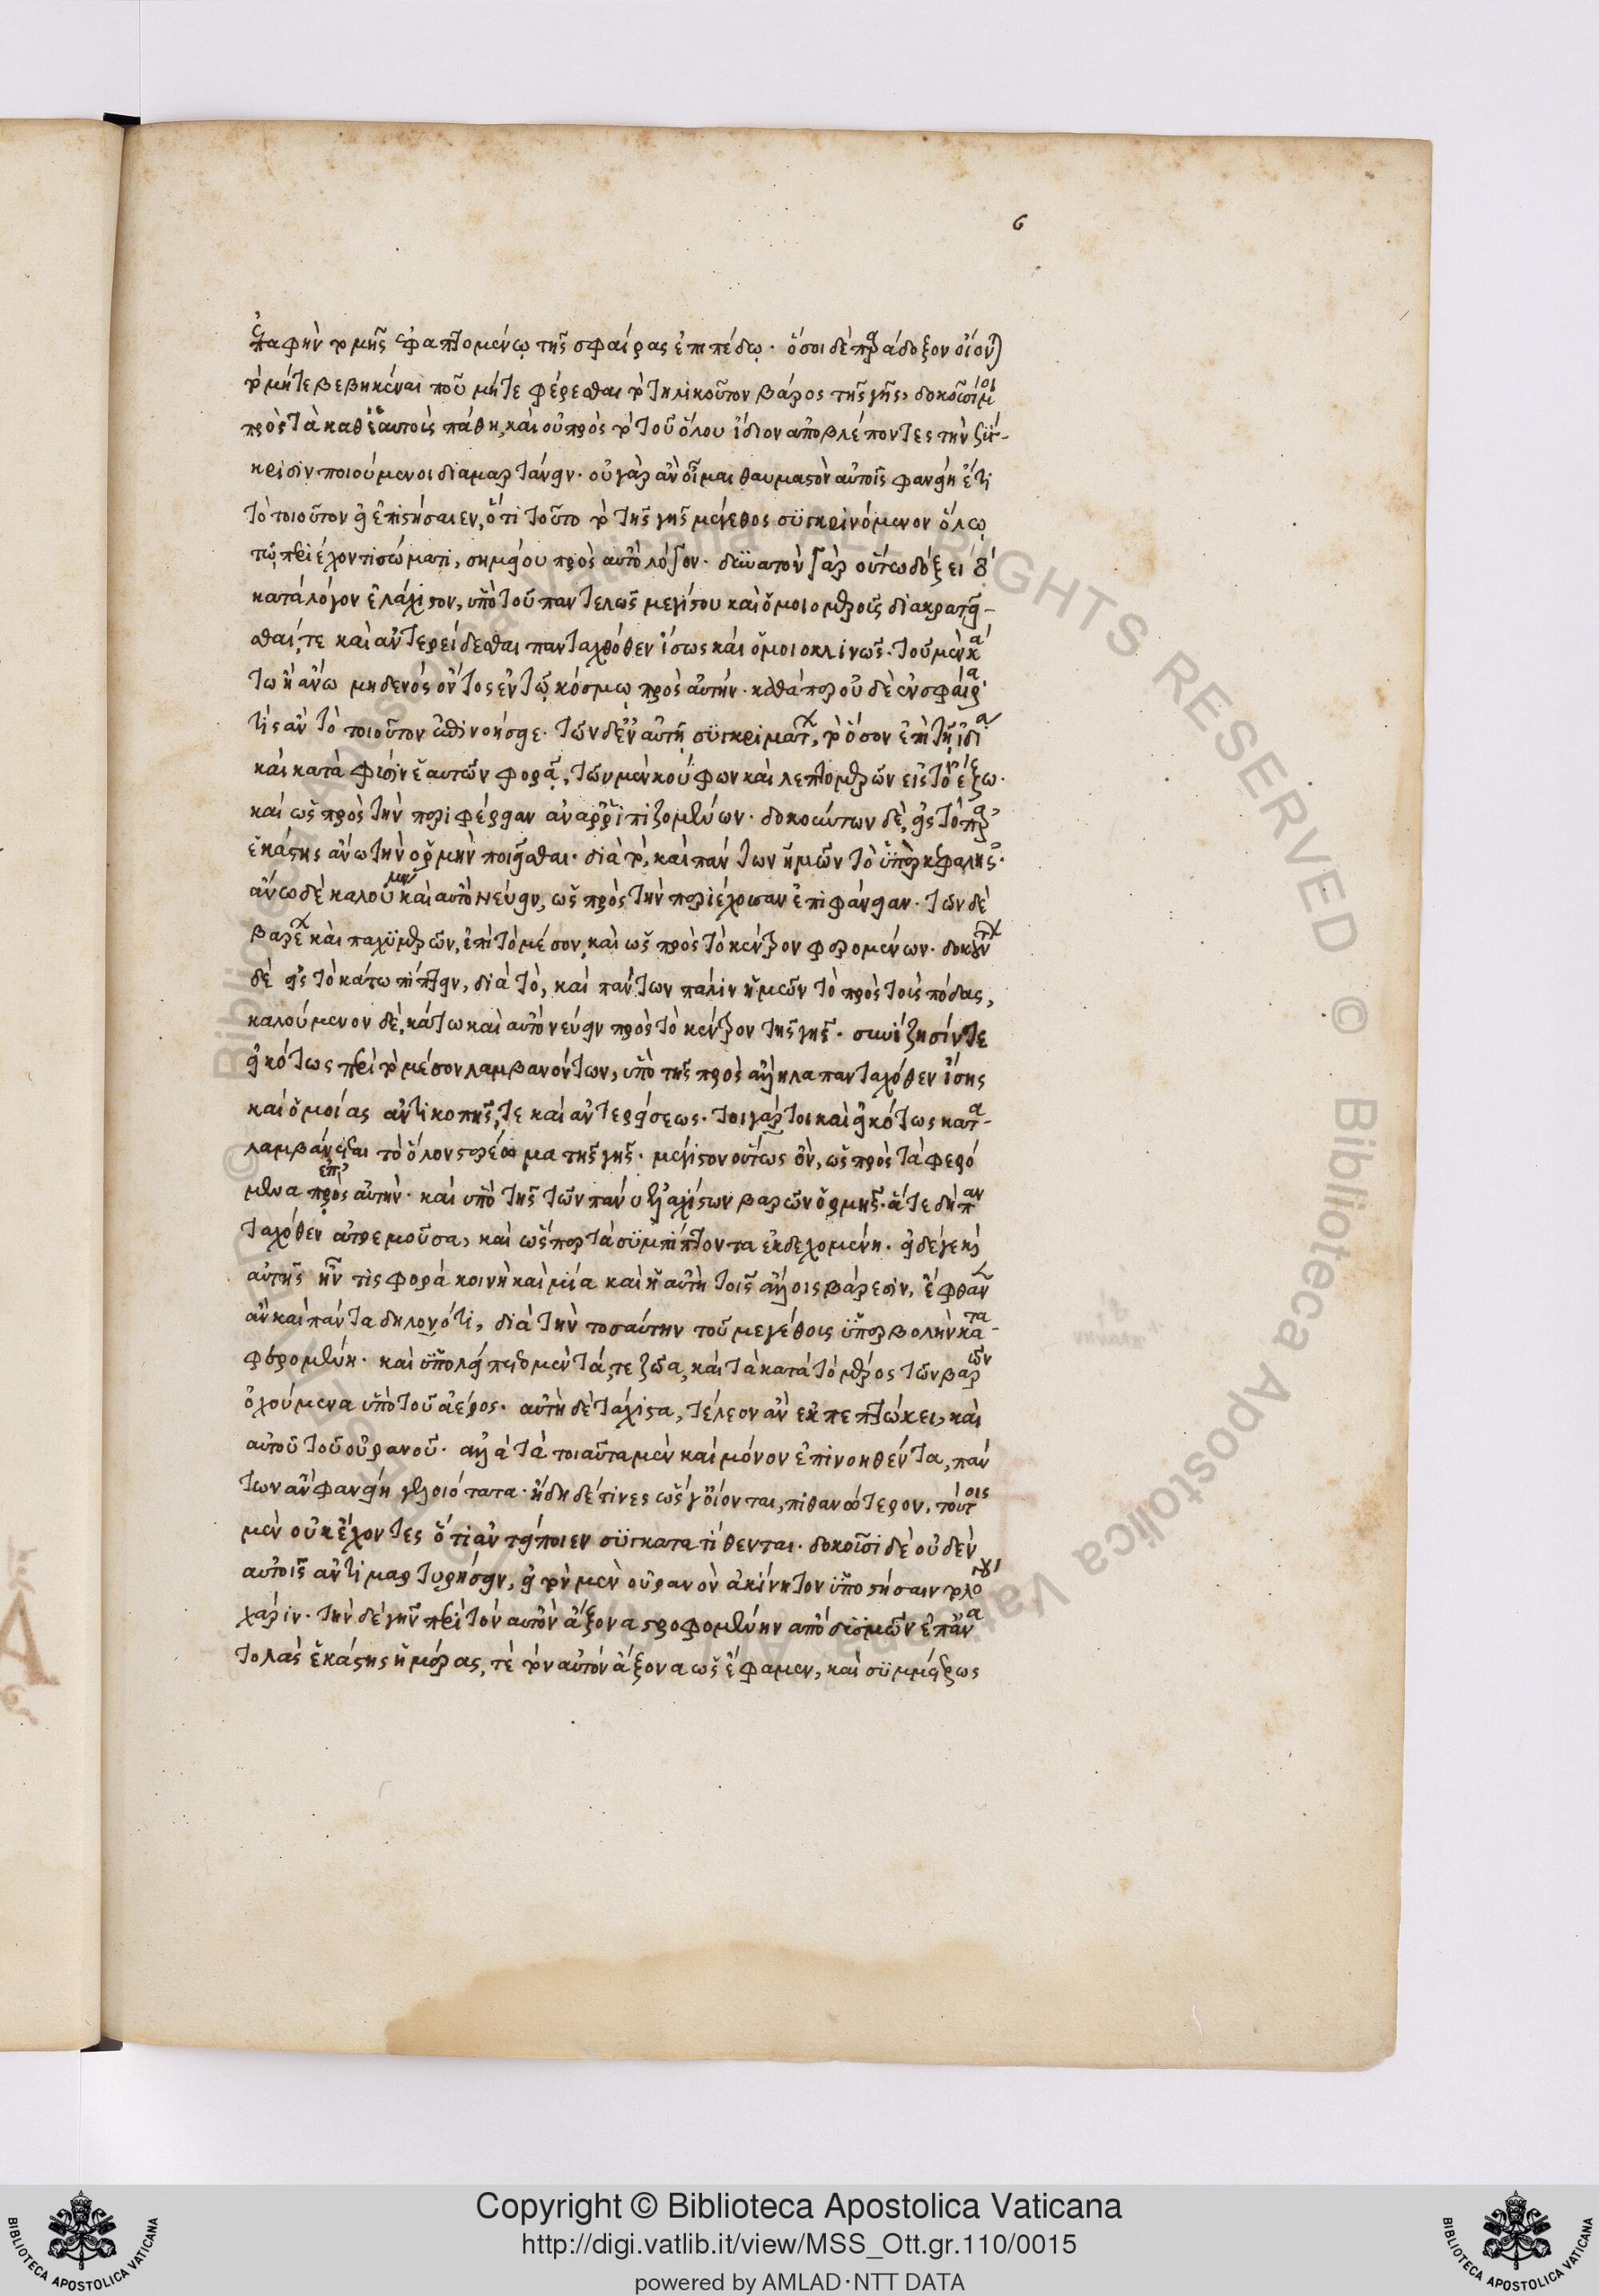 6
ἐπαφὴν τῷ τῆς ἐφαπτομένῳ τῆς σφαίρας ἐπιπέδῳ. ὅσοι δὲ παράδοξον οἴονται
τὸ μήτε βεβηκέναι που μήτε φέρεσθαι τὸ τηλικοῦτον βάρος τῆς γῆς, δοκοῦσί μοι
πρὸς τὰ καθ' ἑαυτοὺς πάθη, καὶ οὐ πρὸς τὸ τοῦ ὅλου ἴδιον ἀποβλέποντες τὴν σύγ-
κρισιν ποιούμενοι διαμαρτάνειν. οὐ γὰρ ἂν οἶμαι θαυμαστὸν αὐτοῖς φανείη ἔτι
τὸ τοιοῦτον εἰ ἐπιστήσαιεν, ὅτι τοῦτο τὸ τῆς γῆς μέγεθος συγκρινόμενον ὅλῳ
τῷ περιέχοντι σώματι, σημείου πρὸς αὐτὸ λόγον. δυνατὸν γὰρ οὕτω δόξει τὸ
κατὰ λόγον ἐλάχιστον, ὑπὸ τοῦ παντελῶς μεγίστου καὶ ὁμοιομεροῦς διακρατεῖ-
σθαί, τε καὶ ἀντερείδεσθαι πανταχόθεν ἴσως καὶ ὁμοιοκλινῶς. τοῦ μὲν κά
τω ἢ ἄνω μηδενὸς ὄντος ἐν τῷ κόσμῳ πρὸς αὐτήν. καθάπερ οὐδὲ ἐν σφαίρᾳ
τὶς ἂν τὸ τοιοῦτον ἐπινοήσειε. τῶν δὲ ἐν αὐτῇ συγκριμάτων, τὸ ὅσον ἐπὶ τῇ ἰδίᾳ
καὶ κατὰ φύσιν ἑαυτῶν φορᾷ, τῶν μὲν κούφων καὶ λεπτομερῶν εἰς τὸ ἔξω.
καὶ ὡς πρὸς τὴν περιφέρειαν ἀναρριπιζομένων. δοκούντων δὲ, εἰς τὸ παρ'
ἑκάστης ἄνω τὴν ὁρμὴν ποιεῖσθαι. διὰ τὸ, καὶ πάντων ἡμῶν τὸ ὑπὲρ κεφαλῆς.
ἄνω δὲ καλούμενον καὶ αὐτὸ νεύειν, ὡς πρὸς τὴν περιέχουσαν ἐπιφάνειαν. τῶν δὲ
βαρέων καὶ παχυμερῶν, ἐπὶ τὸ μέσον, καὶ ὡς πρὸς τὸ κέντρον φερομένων. δοκούντων
δὲ εἰς τὸ κάτω πίπτειν, διὰ τὸ, καὶ πάντων πάλιν ἡμῶν τὸ πρὸς τοὺς πόδας,
καλούμενον δὲ, κάτω καὶ αὐτὸ νεύειν πρὸς τὸ κέντρον τῆς γῆς. συνίζησίν τε
εἰκότως περὶ τὸ μέσον λαμβανόντων, ὑπὸ τῆς πρὸς ἄλληλα πανταχόθεν ἴσης
καὶ ὁμοίας ἀντικοπῆς, τε καὶ ἀντερείσεως. τοιγάρτοι καὶ εἰκότως κατα-
λαμβάνεται τὸ ὅλον στερέωμα τῆς γῆς. μέγιστον οὕτως ὂν, ὡς πρὸς τὰ φερό
μενα ἐπ' πρὸς αὐτήν. καὶ ὑπὸ τῆς τῶν πάνυ ἐλαχίστων βαρῶν ὁρμῆς. ἅτε δὴ παν
ταχόθεν ἀτρεμοῦσα, καὶ ὥσπερ τὰ συμπίπτοντα ἐκδεχομένη. εἰ δέ γε καὶ
αὐτῆς ἦν τὶς φορὰ κοινὴ καὶ μία καὶ ἡ αὐτὴ τοῖς ἄλλοις βάρεσιν, ἔφθανεν
ἂν καὶ πάντα δηλονότι, διὰ τὴν τοσαύτην τοῦ μεγέθους ὑπερβολὴν κατα-
φερομένη. καὶ ὑπολείπετο μὲν τά, τε ζῶα, καὶ τὰ κατὰ τὸ μέρος τῶν βαρῶν
ὀχούμενα ὑπὸ τοῦ ἀέρος. αὐτὴ δὲ τάχιστα, τέλεον ἂν ἐκπεπτώκει, καὶ
αὐτοῦ τοῦ οὐρανοῦ. ἀλλὰ τὰ τοιαῦτα μὲν καὶ μόνον ἐπινοηθέντα, πάν
των ἂν φανείη γελοιότατα. ἤδη δέ τινες ὥς γ' οἴονται, πιθανώτερον, τούτοις
μὲν οὐκ ἔχοντες ὅ τι ἀντείποιεν συγκατατίθενται. δοκοῦσι δὲ οὐδὲν
αὐτοῖς ἀντιμαρτυρήσειν, εἰ τὸν μὲν οὐρανὸν ἀκίνητον ὑποστήσαιντο λόγου
χάριν. τὴν δὲ γῆν περὶ τὸν αὐτὸν ἄξονα στρεφομένην ἀπὸ δυσμῶν ἐπ' ἀνα
τολὰς ἑκάστης ἡμέρας, τὲ τὸν αὐτὸν ἄξονα ὡς ἔφαμεν, καὶ συμμέτρως
Copyright © Biblioteca Apostolica Vaticana
http://digi.vatlib.it/view/MSS_Ott.gr.110/0015
powered by AMLAD·NTT DATA